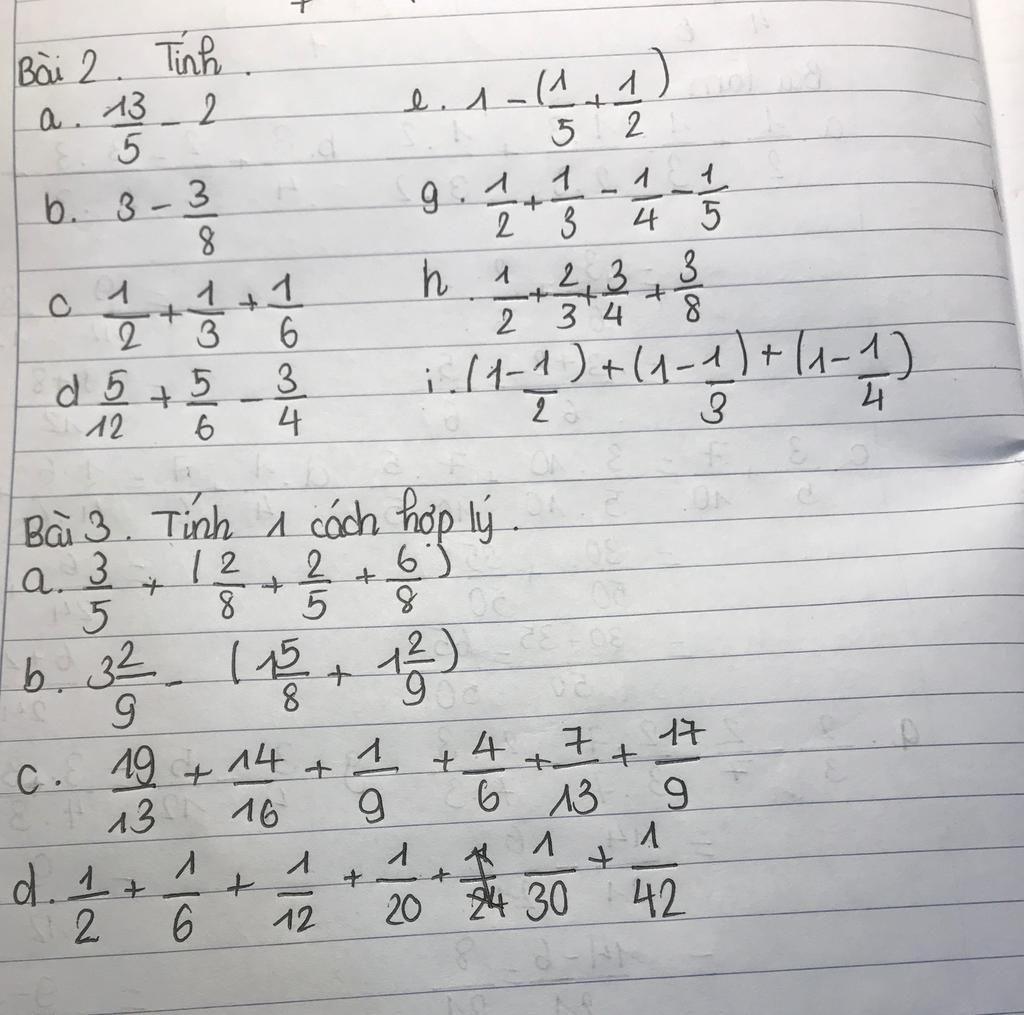 Bài 2. Tính.
a. 13/5 - 2 e. 1 - (1/5 + 1/2)
b. 3 - 3/8 g. 1/2 + 1/3 - 1/4 - 1/5
c 1/2 + 1/3 + 1/6 h. 1/2 + 2/3 + 3/4 + 3/8
d 5/12 + 5/6 - 3/4 i. (1 - 1/2) + (1 - 1/3) + (1 - 1/4)
Bài 3. Tính 1 cách hợp lý.
a. 3/5 + (2/8 + 2/5 + 6/8)
b. 3 2/9 - (1 5/8 + 1 2/9)
c. 19/13 + 14/16 + 1/9 + 4/6 + 7/13 + 17/9
d. 1/2 + 1/6 + 1/12 + 1/20 + 1/30 + 1/42